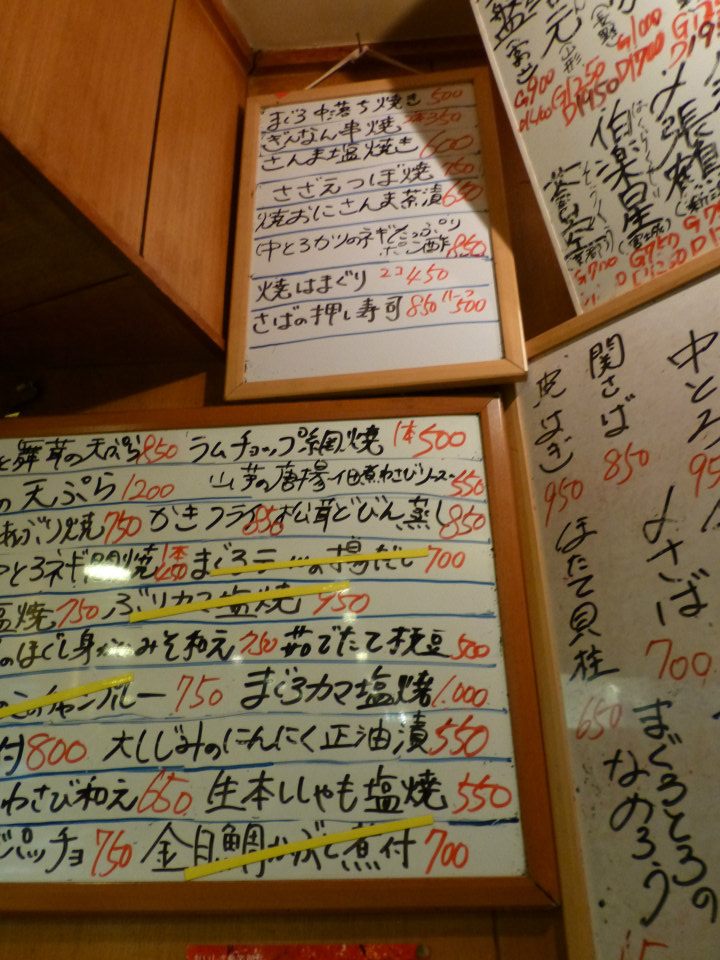 まぐろ中落ち焼き 500
ぎんなん串焼 2本350
さんま塩焼き 600
さざえつぼ焼 750
焼おにさんま茶漬 650
中とろカツのネギたっぷりポン酢 850
焼はまぐり 2コ450
さばの押し寿司 850 ハーフ500
舞茸の天ぷら 850 ラムチョップ網焼 1本500
の天ぷら 1200 山芋の唐揚 佃煮わさびソース 550
あぶり焼 750 かきフライ 850 松茸どびん蒸し 850
とろネギ間焼 1本450 まぐろ の揚だし 700
塩焼 750 ぶりカマ塩焼 950
のほぐし身かにみそ和え 750 茹でたて枝豆 500
のこのチャンプルー 750 まぐろカマ塩焼 1.000
付 800 大しじみのにんにく正油漬 550
わさび和え 650 生本ししゃも塩焼 550
パッチョ 750 金目鯛かぶと煮付 700
中とろ
関さば 850
皮はぎ 950
〆さば 700
ほたて貝柱 650
まぐろとろの
なめろう
G900
D1400
山形
G1250
D1950
G1000
D1700
〆張鶴
伯楽星
(宮城)
G750
D1200
G700